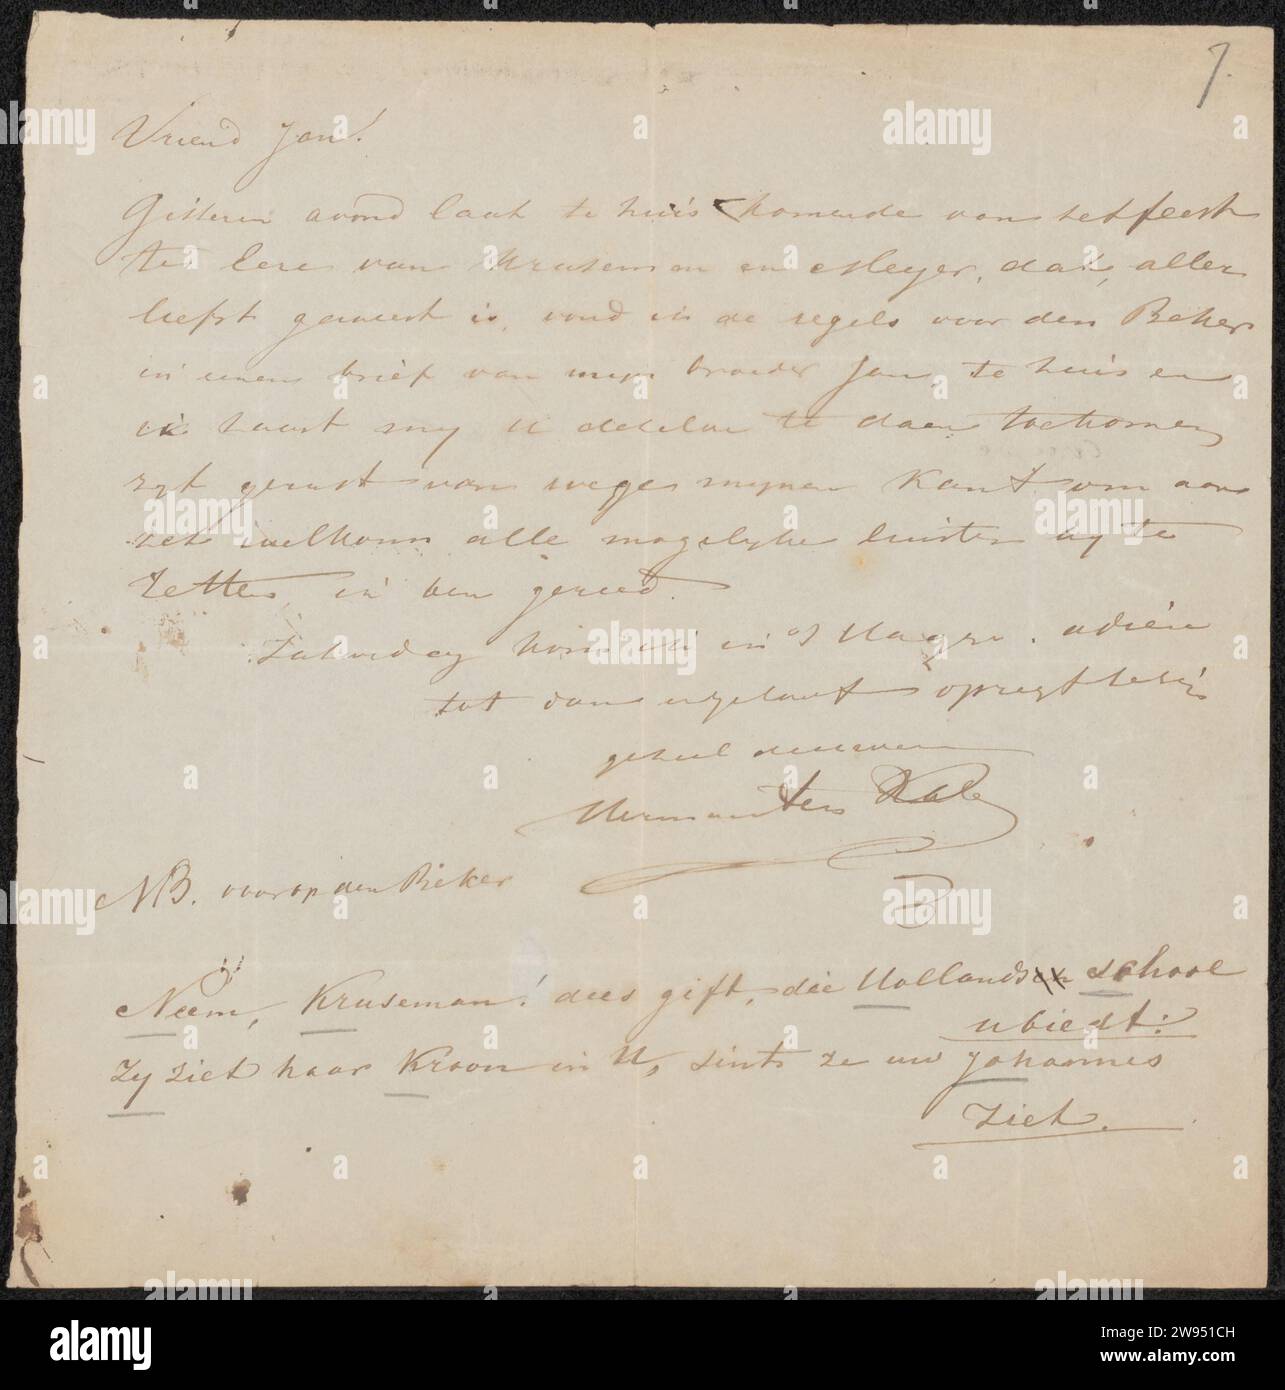 7.
Vriend Jan!
Gisteren avond laat te huis komende van het feest
ter eere van Kruseman en Meyer, dat, aller
liefst geweest is, vond ik de regels voor den Beker
in eenen brief van mijn broeder Jan, te huis en
ik haast my U dezelve te doen toekomen
zyt gerust van wege mynen kant om aan
het welkom alle mogelyke luister by te
zetten, ik ben gereed.
Zaturdag kom ik in 's Hage. adieu
tot dan opregtelijk
geheel de uwen
Herman ten Kate
NB. voor op den Beker
Neem, Kruseman! dees gift, die Hollands school
ubiedt:
Zy ziet haar Kroon in U, sints ze uw Johannes
ziet.
alamy
Image ID: 2W951CH
www.alamy.com